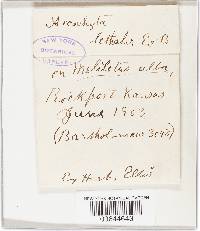 Ascochyta
lethalis E. & B
NEW YORK
BOTANICAL
GARDEN
on Melilotus alba,
Rockport Kansas
June 1903
(Bartholomew 3096)
Ex Herb. Ellis
NEW YORK BOTANICAL GARDEN